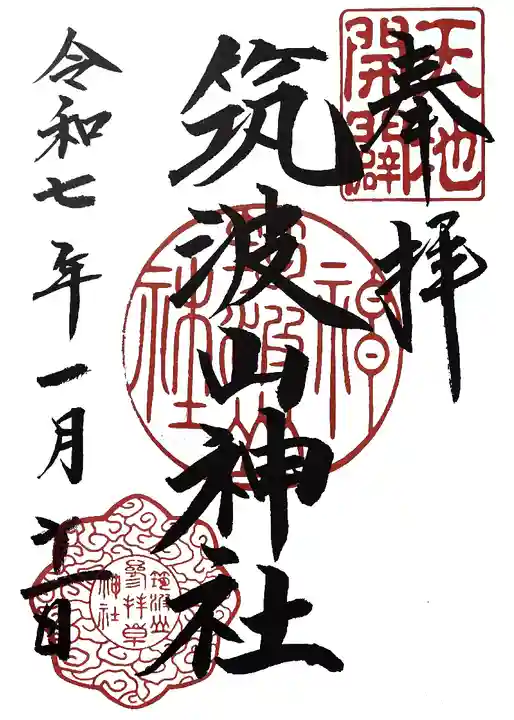 奉拝
天地
開闢
筑波山神社
筑波山
神社
令和七年一月十一日
筑波山
参拝章
神社